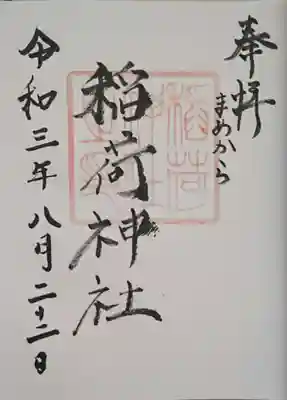 奉拝
まめから
稲荷神社
令和三年八月二十二日